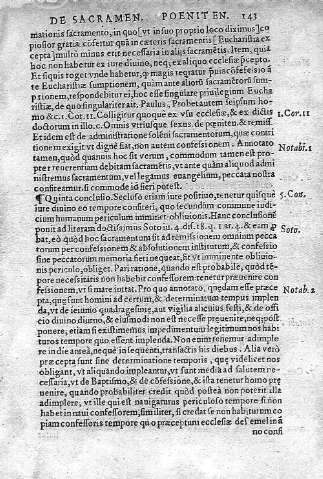 DE SACRAMEN. POENITEN. 143
mationis sacramento, in quo ( vt in suo proprio loco diximus ) co
piosior gratia cõfertur quã in cæteris sacramentis ( Eucharistia ex
cepta ) multò minus erit necessaria in alijs sacramẽtis. Item, quia
hoc non habetur ex iure diuino, neq; ex aliquo ecclesiæ præcepto.
Et siquis roget vnde habetur, magis requiratur confessio
ante Eucharistiæ sumptionem, quàm ante aliorũ sacramẽtorũ sum
ptionem, respondebitur ei, hoc esse singulare priuilegium Eucha
ristiæ, de quo singulariter ait Paulus, Probet autem seipsum ho
mo &c. 1. Cor. 11. Colligitur quoque ex vsu ecclesiæ, & ex dictis
1. Cor. 11
doctorum in illo c. Omnis vtriusque sexus. de pœniten. & remiss.
Et idem est de administratione solẽni sacramentorum, quæ contri
tionem exigit vt dignè fiat, non autem confessionem. Annotato
Notabi. 1
tamen, quòd quamuis hoc sit verum, commodum tamen est pro
pter reuerentiam debitam sacramẽtis, vt ante quàm aliquod admi
nistremus sacramentum, vel legamus euangelium, peccata nostra
confiteamur si commodè id fieri potest.
¶ Quinta conclusio. Secluso etiam iure positiuo, tenetur quisque
5. Con.
iure diuino eo tempore confiteri, quo secundum commune iudi
cium humanum periculum imminet obliuionis. Hanc conclusionẽ
ponit ad literam doctissimus Soto in 4. dist. 18. q. 1 ar. 4. & eam p
Soto.
bat, eò quòd hoc sacramentum sit ad remissionem omnium pecca
torum per confessionem & absolutionem institutum, & confessio
sine peccatorum memoria fieri nequeat, hinc vt imminente obliuio
nis periculo, obliget. Pari ratione, quando est probabile, quòd tẽ
pore necessitatis non habebit confessorem tenetur præuenire con
fessionem, vt si mare intrat. Pro quo annotato, quædam esse præce
Notab. 2
pta, quæ sunt homini ad certum, & determinatum tempus implen
da, vt de ieiunio quadragesimæ, aut vigiliæ alicuius festi, & de offi
cio diuino diurno, & eiusmodi non est necesse præuenire, neq; post
ponere, etiam si existimemus impedimentum legitimum nos habi
turos tempore quo essent implenda. Non enim tenemur adimple
re in die antea, neque in sequenti, transactis his diebus. Alia verò
præcepta sunt sine determinatione temporis, quæ videlicet nos
obligant, vt aliquando impleantur, vt sunt media ad salutem ne
cessaria, vt de Baptismo, & de cõfessione, & ista tenetur homo præ
uenire, quando probabiliter credit quòd posteà non poterit illa
adimplere, vt ille qui est nauigaturus periculoso tempore si non
habet in naui confessorem, similiter, si credat se non habiturum co
piam confessoris tempore quo præceptum ecclesiæ de semel in ã
no confi